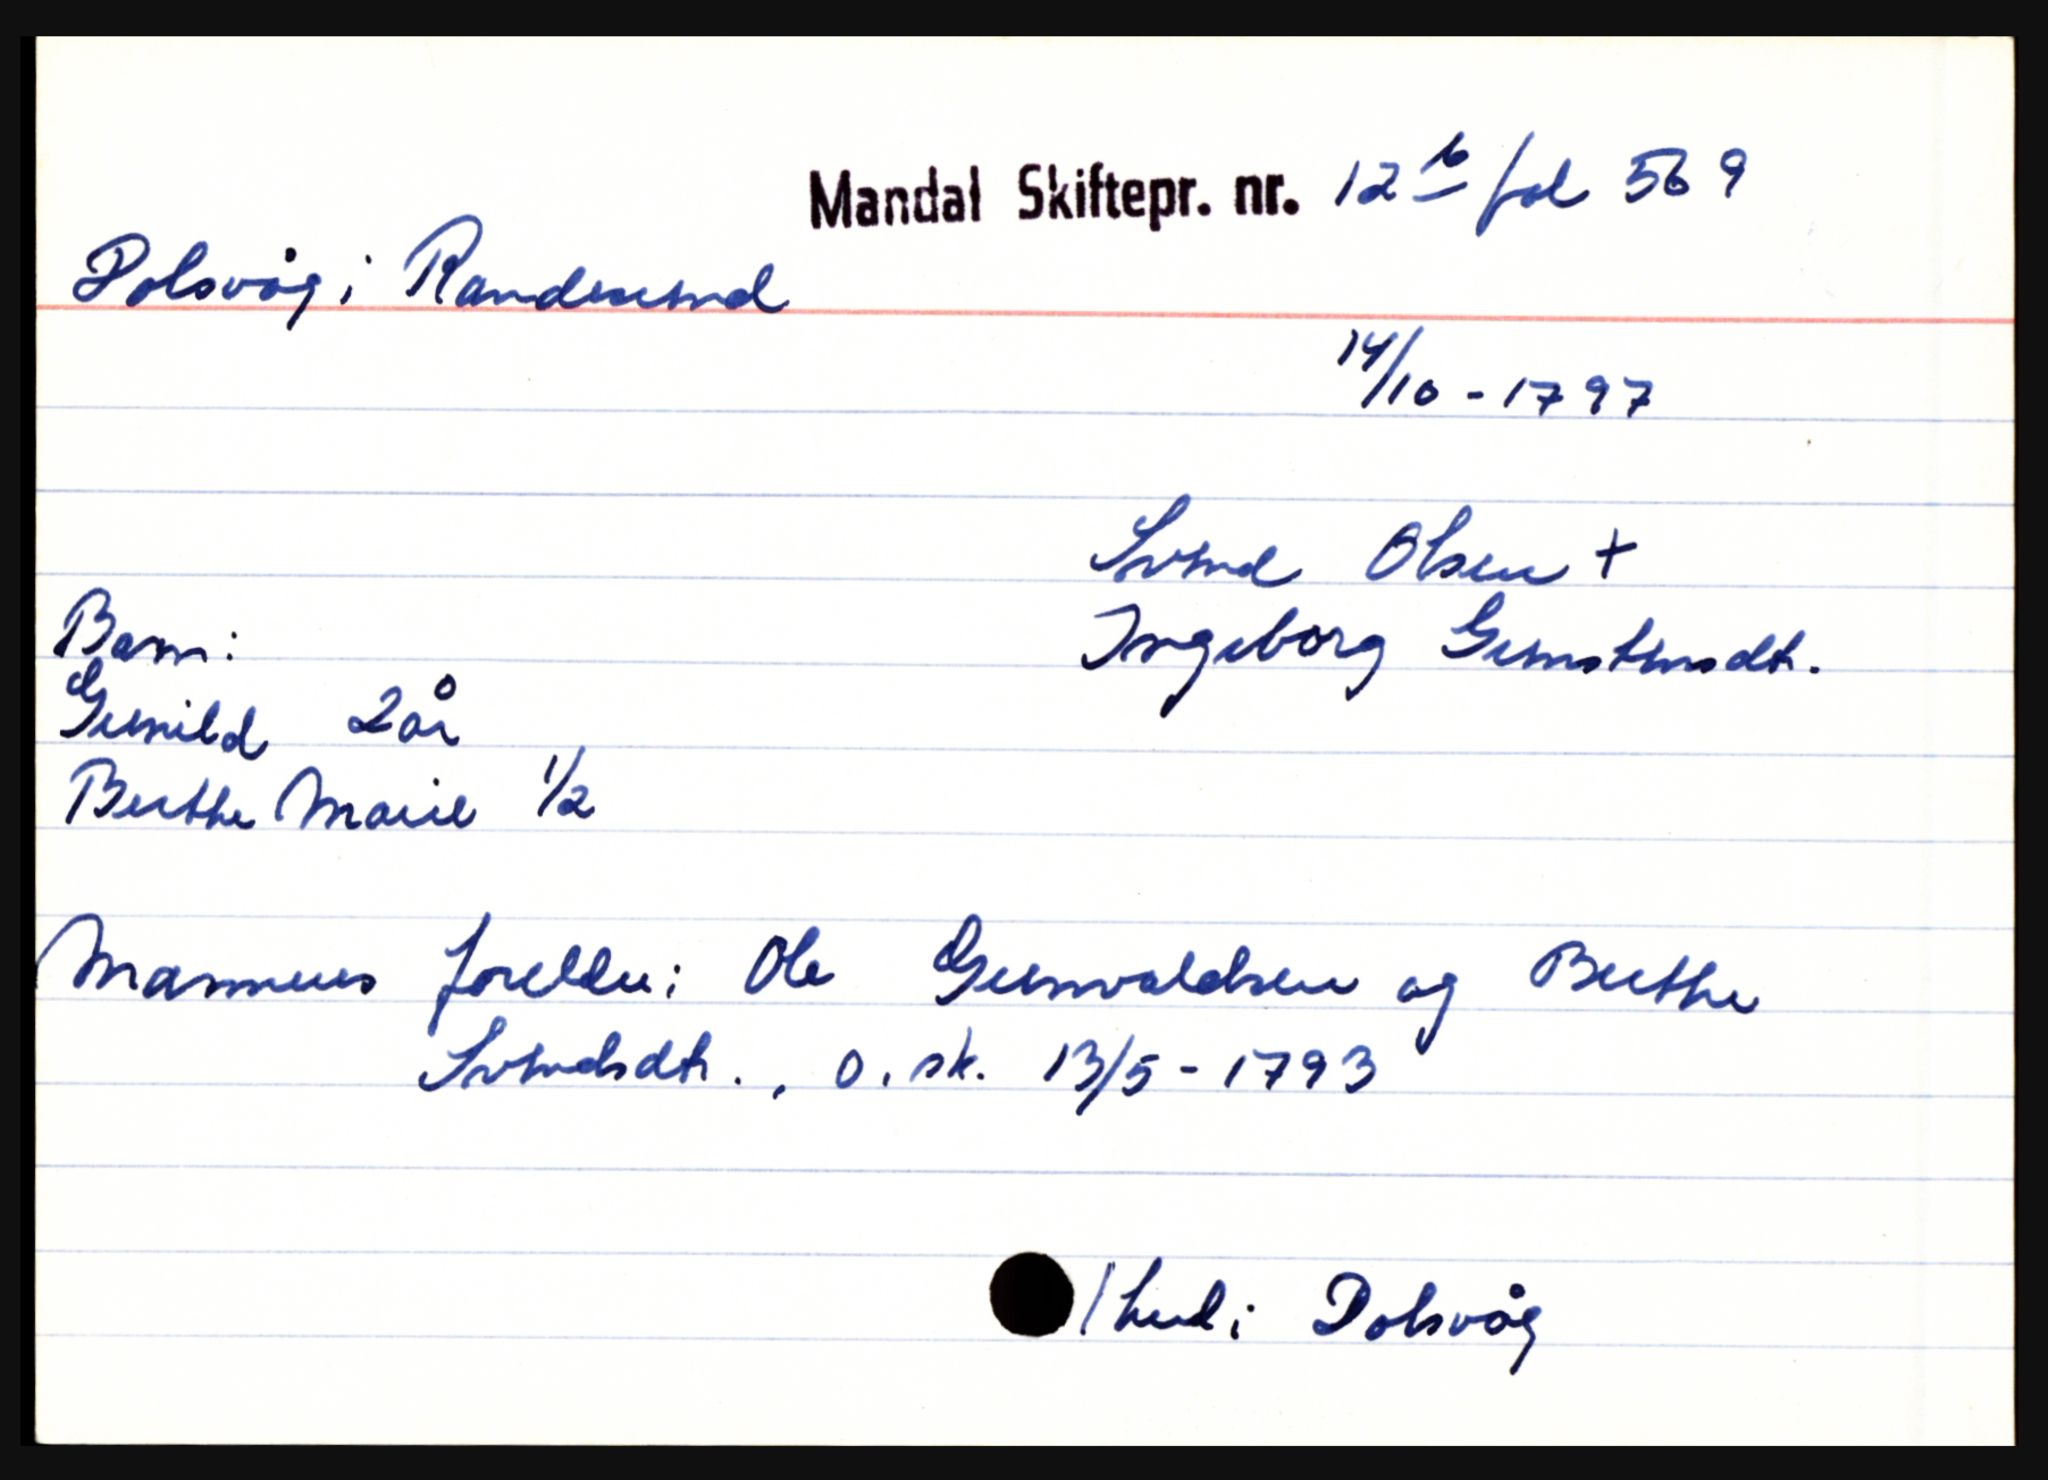 Mandal Skiftepr. nr. 12 b fol 569
Dolsvåg i Randesund
14/10 - 1797
Svend Olsen +
Barn:
Ingeborg Gunstensdtr.
Gunild 2 år
Berthe Marie 1/2
Mannens foreldre: Ole Gunvaldsen og Berthe
Svendsdtr., o. sk. 13/5 - 1793
Dolsvåg